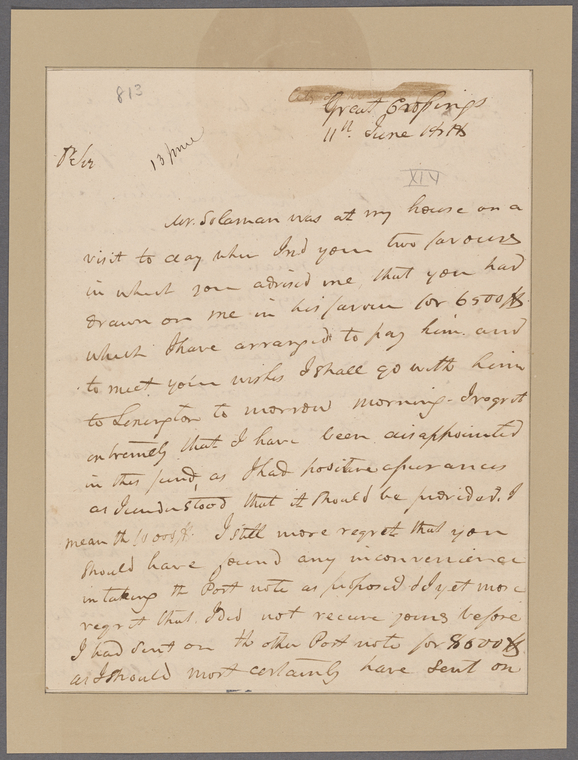 813
Great Crossings
11th June 1818
13 June
XIV
Mr. Solaman was at my house on a
visit to day when I recd your two favours
in which you advised me, that you had
drawn on me in his favour for 6500$
which I have arranged to pay him and
to meet your wishes I shall go with him
to Lexington to morrow morning - I regret
extremely that I have been disappointed
in this fund, as I had positive assurances
as I understood that it should be provided. I
mean the 10 000$. I still more regret that you
should have found any inconvenience
in taking the Post note as proposed & I yet more
regret that I did not receive yours before
I had sent on the other Post note for 8600$
as I should most certainly have sent on